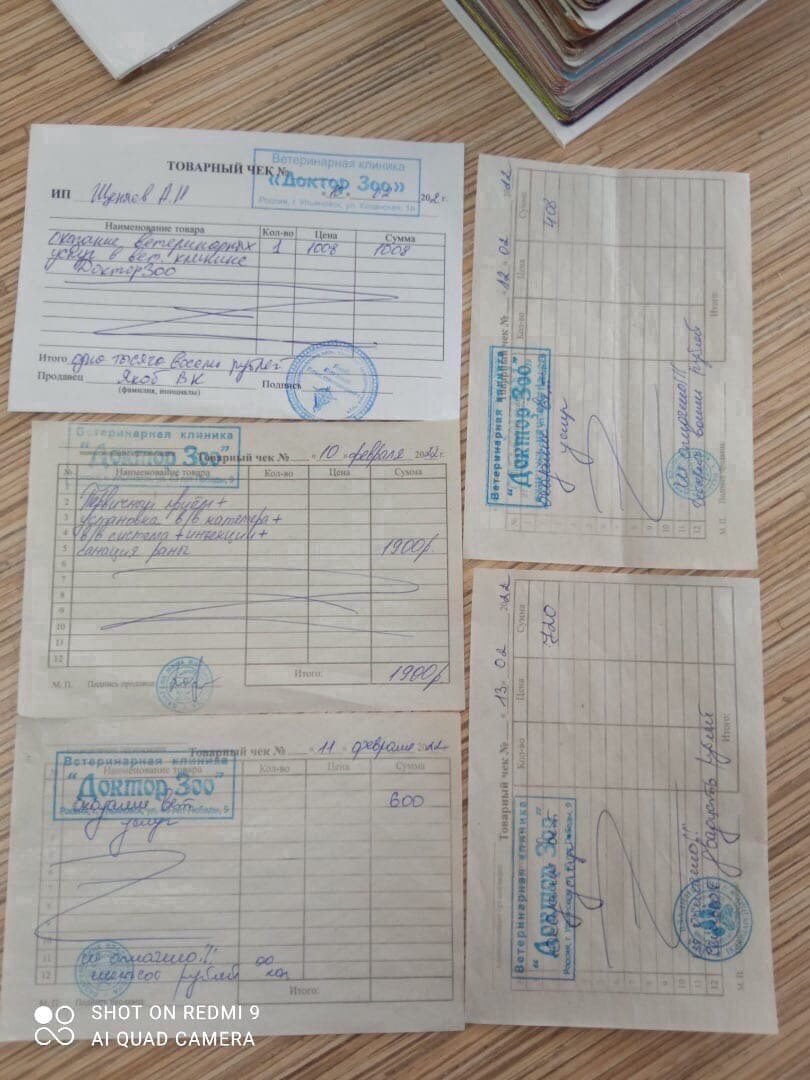 ТОВАРНЫЙ ЧЕК №
Ветеринарная клиника
«Доктор Зоо»
Россия, г. Ульяновск, ул. Казанская,
02 2022 г.
ИП Щеняев А.Н
Наименование товара Кол-во Цена Сумма
оказание ветеринарных 1 1008 1008
услуг в вет. клинике
Доктор Зоо
Итого одна тысяча восемь рублей
Продавец Якоб ВК Подпись
(фамилия, инициалы)
Ветеринарная клиника
"Доктор Зоо"
Товарный чек № «10» февраля 2022 г.
№ Наименование товара Кол-во Цена Сумма
1
2 Первичный приём +
3 установка в/в катетера +
4 в/в система + инъекции +
5 санация раны 1900р
6
7
8
9
10
11
12
Итого: 1900р
М. П. Подпись продавца
Товарный чек № «11» февраля 2022
Ветеринарная клиника
"Доктор Зоо"
Наименование товара Кол-во Цена Сумма
оказание вет. 600
услуг
10
11
12 шестьсот рублей 00 коп
Итого:
М. П. Подпись продавца
Товарный чек № «12» 02 2022
Ветеринарная клиника
"Доктор Зоо"
Кол-во Цена Сумма
408
услуг
9
10
11
12 восемь рублей
Итого:
М. П. Подпись продавца
Товарный чек № «13» 02 2022
Ветеринарная клиника
"Доктор Зоо"
Кол-во Цена Сумма
720
10
11
12 семьсот двадцать рублей
Итого:
М. П.
SHOT ON REDMI 9
AI QUAD CAMERA